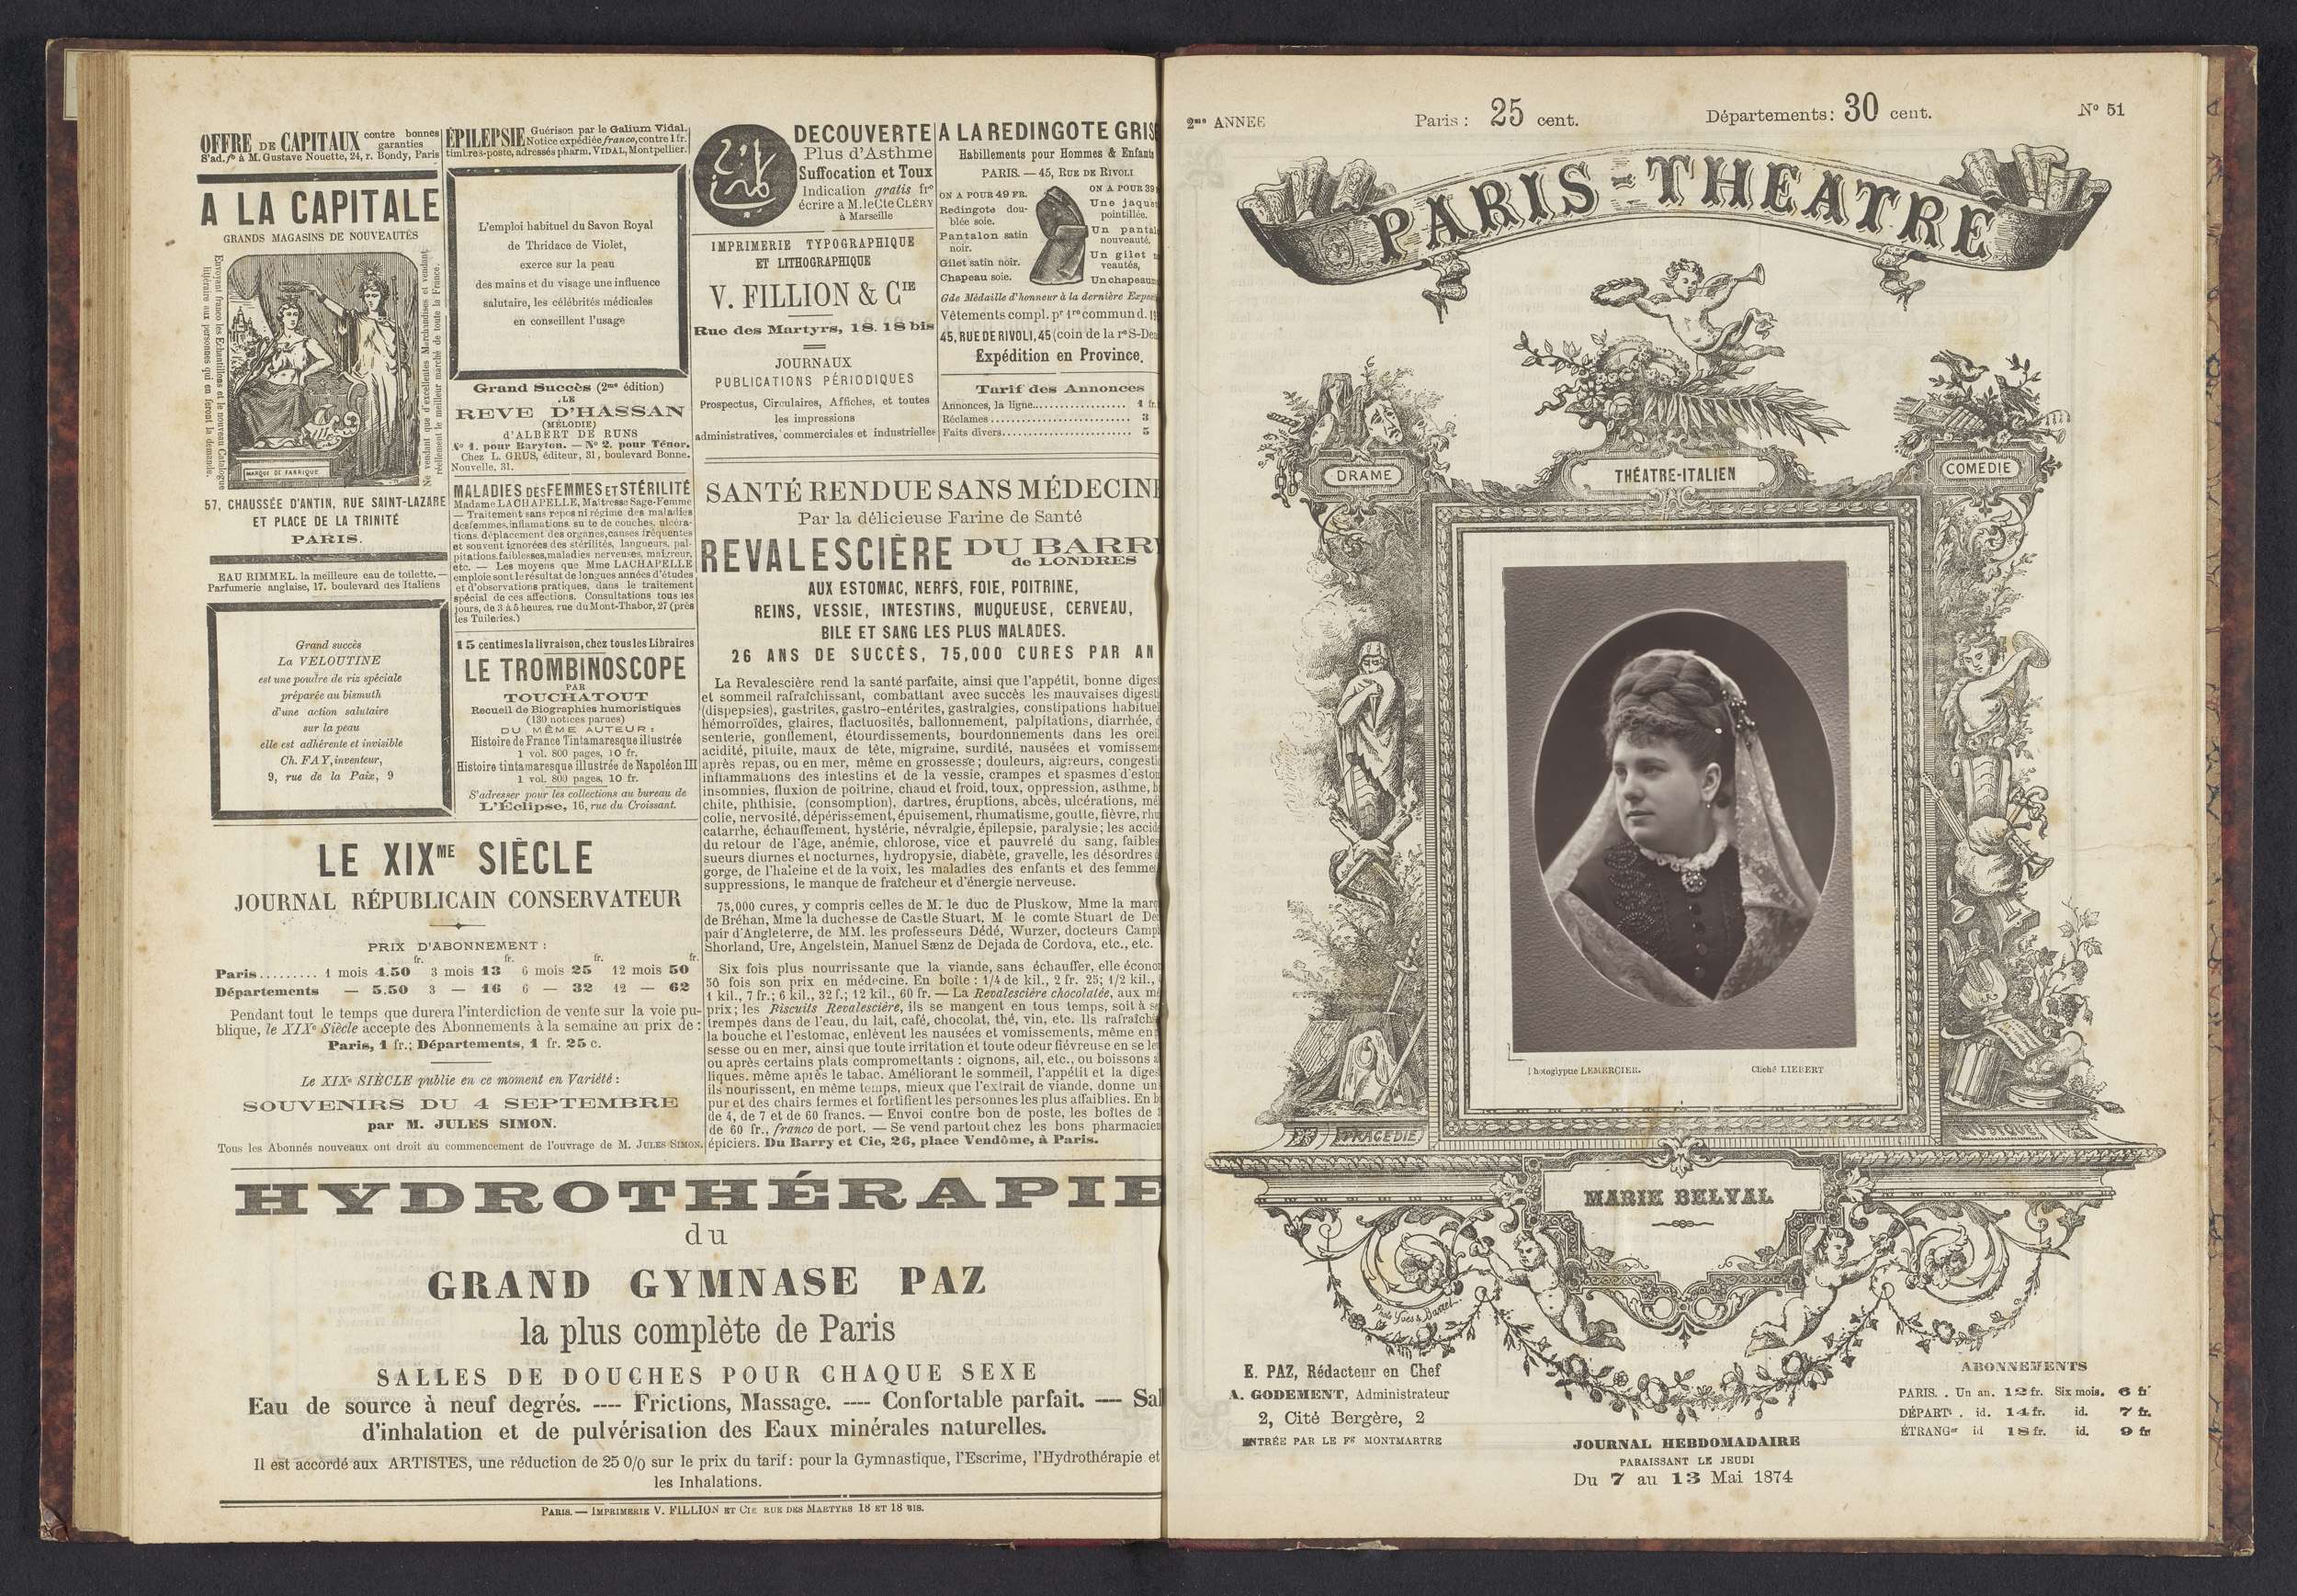 OFFRE DE CAPITAUX contre bonnes garanties
S'ad. fo à M. Gustave Nouette, 24, r. Bondy, Paris
A LA CAPITALE
GRANDS MAGASINS DE NOUVEAUTÉS
Envoyant franco les Echantillons et le nouveau Catalogue
littéraire aux personnes qui en feront la demande.
MARQUE DE FABRIQUE
Ne vendant que d'excellentes Marchandises et vendant
réellement le meilleur marché de toute la France.
57, CHAUSSÉE D'ANTIN, RUE SAINT-LAZARE
ET PLACE DE LA TRINITÉ
PARIS.
EAU RIMMEL. la meilleure eau de toilette.—
Parfumerie anglaise, 17. boulevard des Italiens
Grand succès
La VELOUTINE
est une poudre de riz spéciale
préparée au bismuth
d'une action salutaire
sur la peau
elle est adhérente et invisible
Ch. FAY, inventeur,
9, rue de la Paix, 9
ÉPILEPSIE Guérison par le Galium Vidal.
Notice expédiée franco, contre 1 fr.
timbres-poste, adressés pharm. VIDAL, Montpellier.
L'emploi habituel du Savon Royal
de Thridace de Violet,
exerce sur la peau
des mains et du visage une influence
salutaire, les célébrités médicales
en conseillent l'usage
Grand Succès (2me édition)
LE
REVE D'HASSAN
(MÉLODIE)
d'ALBERT DE RUNS
No 1. pour Baryton. — No 2. pour Ténor.
Chez L. GRUS, éditeur, 31, boulevard Bonne.
Nouvelle, 31.
MALADIES DES FEMMES ET STÉRILITÉ
Madame LACHAPELLE, Maîtresse Sage-Femme
— Traitement sans repos ni régime des maladies
des femmes, inflamations. su te de couches, ulcéra-
tions. déplacement des organes, causes fréquentes
et souvent ignorées des stérilités, langueurs, pal-
pitations, faiblesses, maladies nerveuses, maigreur,
etc. — Les moyens que Mme LACHAPELLE
emploie sont le résultat de longues années d'études
et d'observations pratiques, dans le traitement
spécial de ces affections. Consultations tous les
jours, de 3 à 5 heures, rue du Mont-Thabor, 27 (près
les Tuileries.)
15 centimes la livraison, chez tous les Libraires
LE TROMBINOSCOPE
PAR
TOUCHATOUT
Recueil de Biographies humoristiques
(130 notices parues)
DU MÊME AUTEUR :
Histoire de France Tintamaresque illustrée
1 vol. 800 pages, 10 fr.
Histoire tintamaresque illustrée de Napoléon III
1 vol. 800 pages, 10 fr.
S'adresser pour les collections au bureau de
L'Éclipse, 16, rue du Croissant.
LE XIXME SIÈCLE
JOURNAL RÉPUBLICAIN CONSERVATEUR
PRIX D'ABONNEMENT :
fr. fr. fr. fr.
Paris......... 1 mois 4.50 3 mois 13 6 mois 25 12 mois 50
Départements — 5.50 3 — 16 6 — 32 12 — 62
Pendant tout le temps que durera l'interdiction de vente sur la voie pu-
blique, le XIXe Siècle accepte des Abonnements à la semaine au prix de :
Paris, 1 fr.; Départements, 1 fr. 25 c.
Le XIXe SIÈCLE publie en ce moment en Variété :
SOUVENIRS DU 4 SEPTEMBRE
par M. JULES SIMON.
Tous les Abonnés nouveaux ont droit au commencement de l'ouvrage de M. JULES SIMON.
DECOUVERTE
Plus d'Asthme
Suffocation et Toux
Indication gratis fro
écrire a M. le Cte CLÉRY
à Marseille
IMPRIMERIE TYPOGRAPHIQUE
ET LITHOGRAPHIQUE
V. FILLION & CIE
Rue des Martyrs, 18. 18 bis
JOURNAUX
PUBLICATIONS PÉRIODIQUES
Prospectus, Circulaires, Affiches, et toutes
les impressions
administratives, commerciales et industrielles
A LA REDINGOTE GRIS
Habillements pour Hommes & Enfants
PARIS. — 45, RUE DE RIVOLI
ON A POUR 49 FR.
Redingote dou-
blée soie.
Pantalon satin
noir.
Gilet satin noir.
Chapeau soie.
ON A POUR 39
Une jaque
pointillée.
Un panta
nouveauté.
Un gilet
veautés,
Un chapeau
Gde Médaille d'honneur à la dernière Expo
Vêtements compl. pr 1re commun d. 1
45, RUE DE RIVOLI, 45 (coin de la re S-De
Expédition en Province.
Tarif des Annonces
Annonces, la ligne.................. 1 fr.
Réclames........................... 3
Faits divers......................... 5
SANTÉ RENDUE SANS MÉDECINE
Par la délicieuse Farine de Santé
REVALESCIÈRE DU BARRY
de LONDRES
AUX ESTOMAC, NERFS, FOIE, POITRINE,
REINS, VESSIE, INTESTINS, MUQUEUSE, CERVEAU,
BILE ET SANG LES PLUS MALADES.
26 ANS DE SUCCÈS, 75,000 CURES PAR AN
La Revalescière rend la santé parfaite, ainsi que l'appétit, bonne digest
et sommeil rafraîchissant, combattant avec succès les mauvaises digesti
(dispepsies), gastrites, gastro-entérites, gastralgies, constipations habituel
hémorroïdes, glaires, flactuosités, ballonnement, palpitations, diarrhée,
senterie, gonflement, étourdissements, bourdonnements dans les orei
acidité, pituite, maux de tête, migraine, surdité, nausées et vomisseme
après repas, ou en mer, même en grossesse; douleurs, aigreurs, congesti
inflammations des intestins et de la vessie, crampes et spasmes d'estom
insomnies, fluxion de poitrine, chaud et froid, toux, oppression, asthme, b
chite, phthisie, (consomption), dartres, éruptions, abcès, ulcérations, mé
colie, nervosité, dépérissement, épuisement, rhumatisme, goutte, fièvre, rhu
catarrhe, échauffement, hystérie, névralgie, épilepsie, paralysie; les accid
du retour de l'âge, anémie, chlorose, vice et pauvreté du sang, faibles
sueurs diurnes et nocturnes, hydropysie, diabète, gravelle, les désordres
gorge, de l'haleine et de la voix, les maladies des enfants et des femme
suppressions, le manque de fraîcheur et d'énergie nerveuse.
75,000 cures, y compris celles de M. le duc de Pluskow, Mme la marq
de Bréhan, Mme la duchesse de Castle Stuart, M. le comte Stuart de De
pair d'Angleterre, de MM. les professeurs Dédé, Wurzer, docteurs Campb
Shorland, Ure, Angelstein, Manuel Sænz de Dejada de Cordova, etc., etc.
Six fois plus nourrissante que la viande, sans échauffer, elle écono
50 fois son prix en médecine. En boîte : 1/4 de kil., 2 fr. 25; 1/2 kil.,
1 kil., 7 fr.; 6 kil., 32 f.; 12 kil., 60 fr. — La Revalescière chocolatée, aux mê
prix; les Biscuits Revalescière, ils se mangent en tous temps, soit à se
trempés dans de l'eau, du lait, café, chocolat, thé, vin, etc. Ils rafraîchi
la bouche et l'estomac, enlèvent les nausées et vomissements, même en
sesse ou en mer, ainsi que toute irritation et toute odeur fiévreuse en se le
ou après certains plats compromettants : oignons, ail, etc., ou boissons a
liques. même après le tabac. Améliorant le sommeil, l'appétit et la diges
ils nourissent, en même temps, mieux que l'extrait de viande, donne un
pur et des chairs fermes et fortifient les personnes les plus affaiblies. En b
de 4, de 7 et de 60 francs. — Envoi contre bon de poste, les boîtes de
de 60 fr., franco de port. — Se vend partout chez les bons pharmacien
épiciers. Du Barry et Cie, 26, place Vendôme, à Paris.
HYDROTHÉRAPIE
du
GRAND GYMNASE PAZ
la plus complète de Paris
SALLES DE DOUCHES POUR CHAQUE SEXE
Eau de source à neuf degrés. ---- Frictions, Massage. ---- Confortable parfait. ---- Sal
d'inhalation et de pulvérisation des Eaux minérales naturelles.
Il est accordé aux ARTISTES, une réduction de 25 0/0 sur le prix du tarif: pour la Gymnastique, l'Escrime, l'Hydrothérapie et
les Inhalations.
PARIS. — IMPRIMERIE V. FILLION ET Cie RUE DES MARTYRS 18 ET 18 BIS.
2me ANNEE Paris : 25 cent. Départements: 30 cent. No 51
PARIS-THEATRE
DRAME
THÉATRE-ITALIEN
COMEDIE
Photoglyptie LEMERCIER. Cliché LIEBERT
TRAGEDIE
MUSIQUE
MARIE BELVAL
Photo Yves & Barret
E. PAZ, Rédacteur en Chef
A. GODEMENT, Administrateur
2, Cité Bergère, 2
ENTRÉE PAR LE Fg MONTMARTRE
JOURNAL HEBDOMADAIRE
PARAISSANT LE JEUDI
Du 7 au 13 Mai 1874
ABONNEMENTS
PARIS. . Un an. 12 fr. Six mois. 6 fr
DÉPARTs . id. 14 fr. id. 7 fr.
ÉTRANGer id 18 fr. id. 9 fr